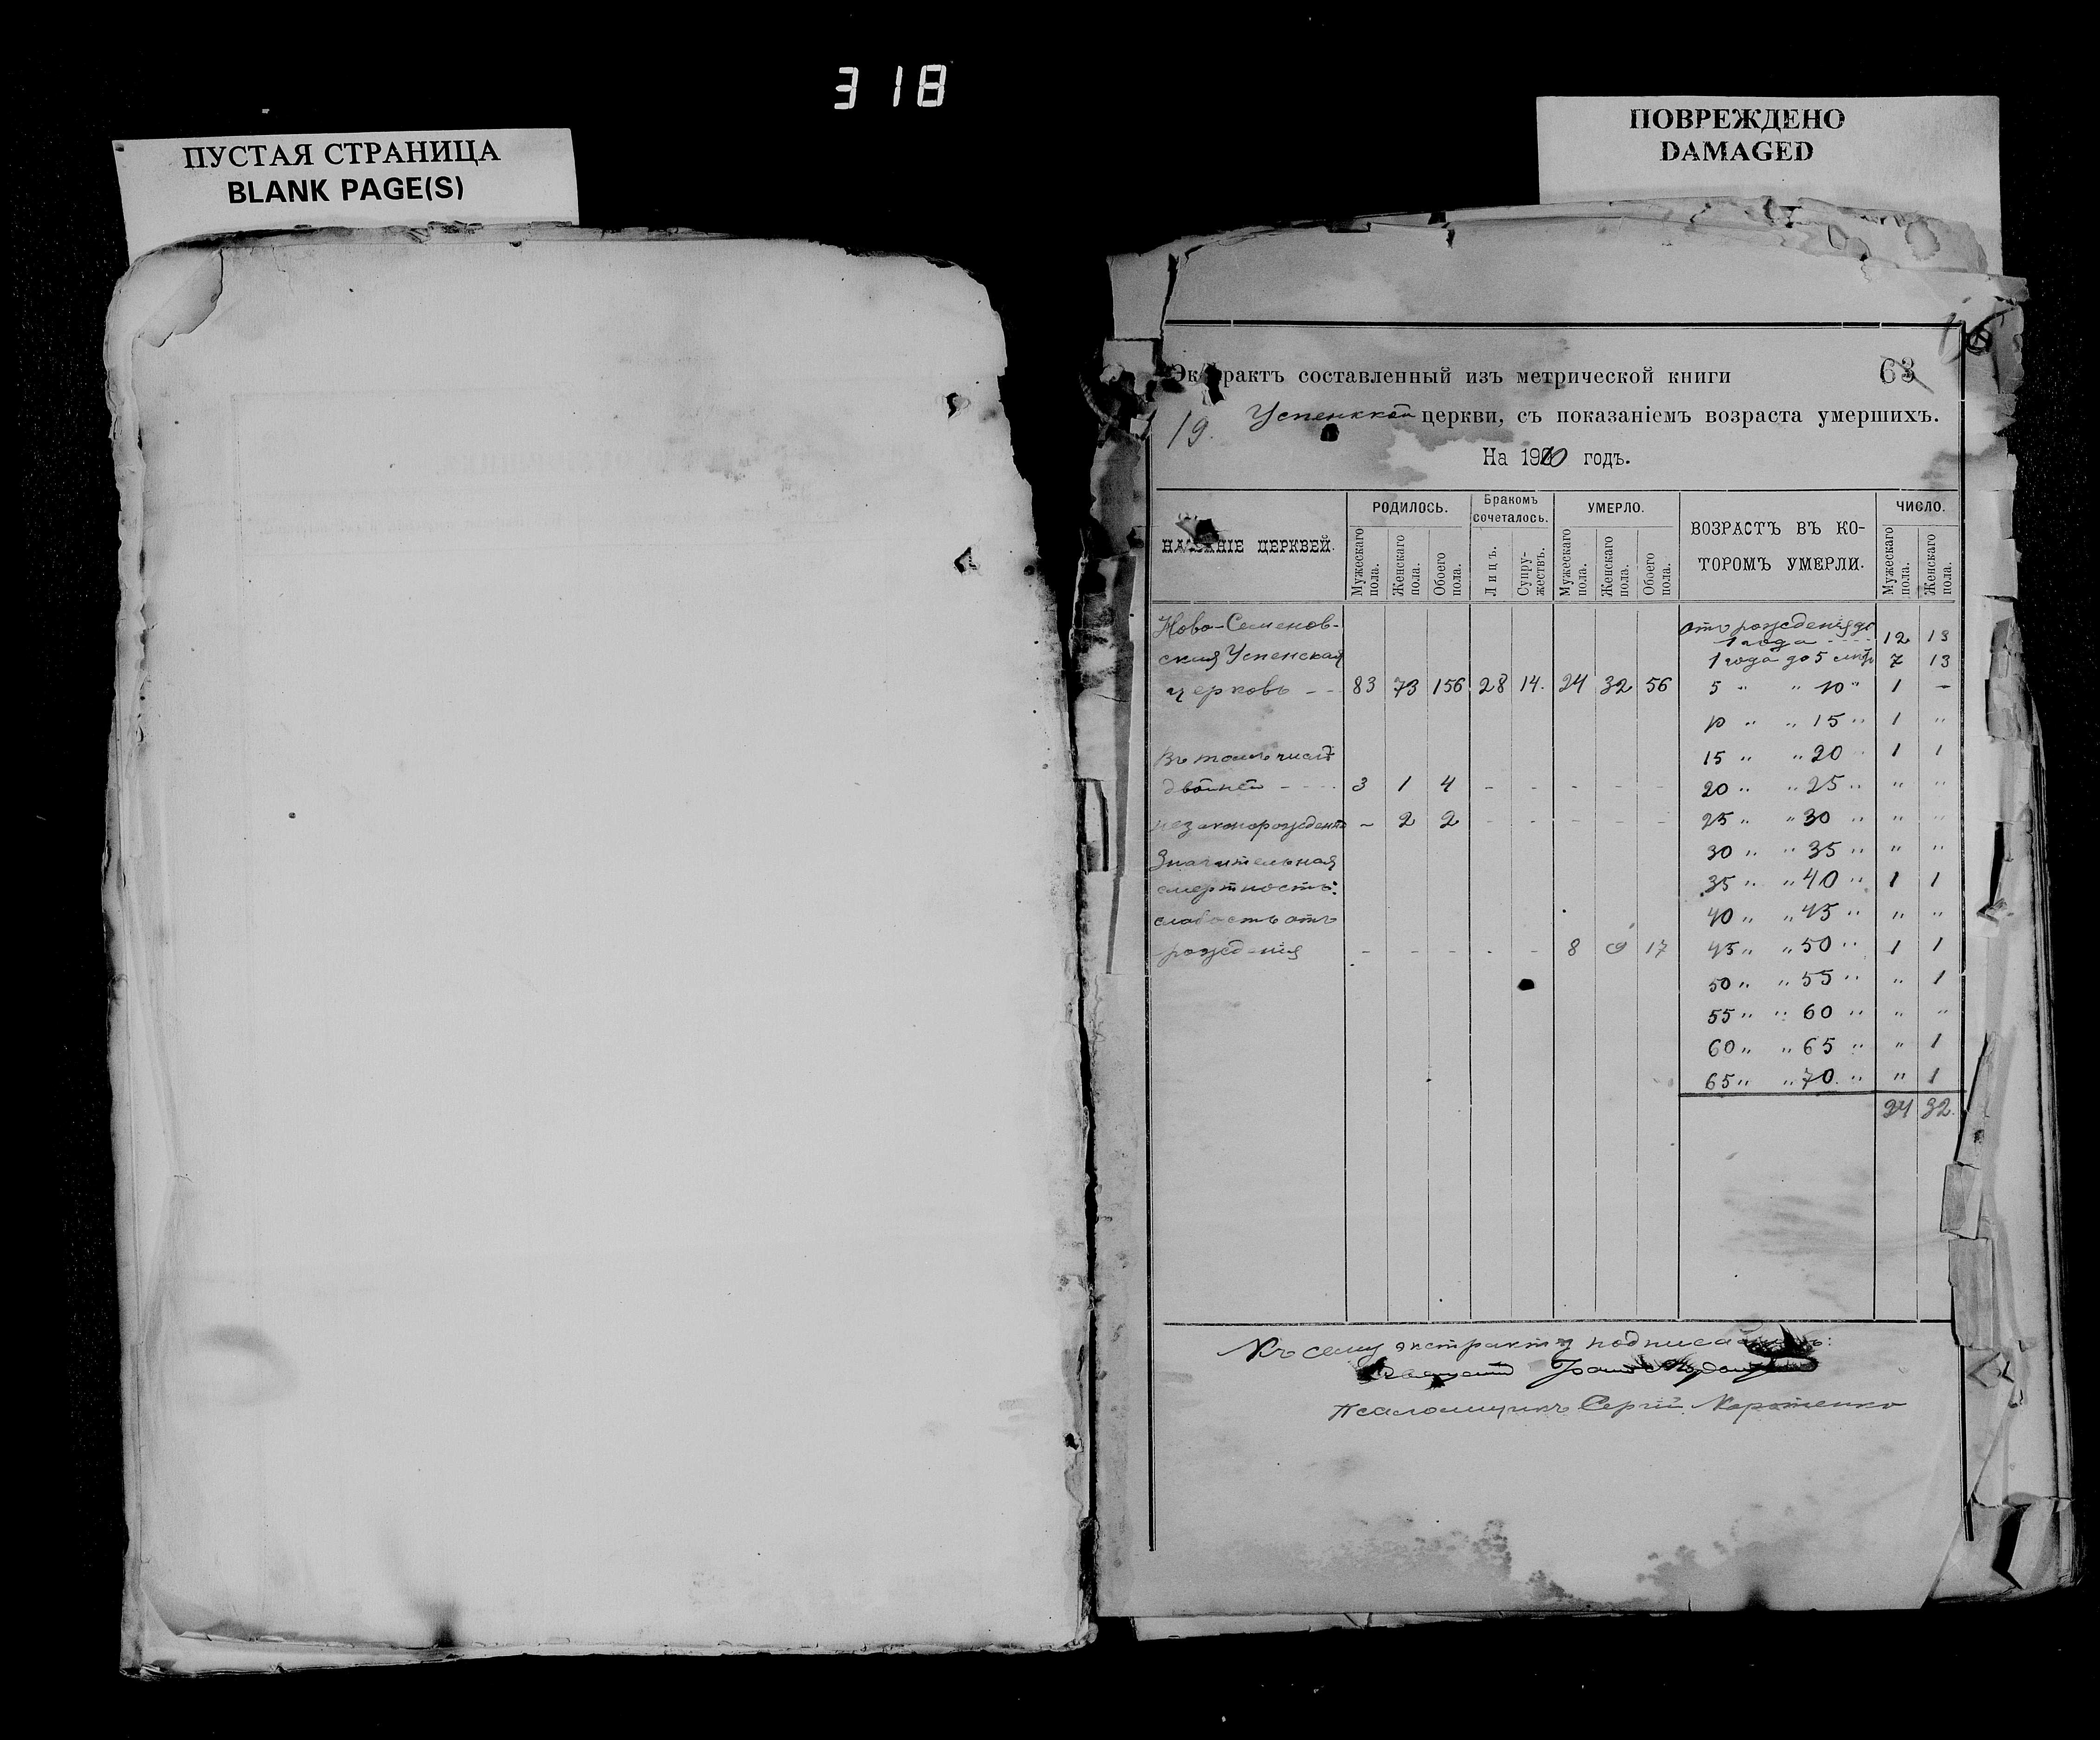 318
ПУСТАЯ СТРАНИЦА
BLANK PAGE(S)
ПОВРЕЖДЕНО
DAMAGED
63
рактъ составленный изъ метрической книги
19. Успенской церкви, съ показаніемъ возраста умершихъ.
На 1910 годъ.
НАЗВАНІЕ ЦЕРКВЕЙ. РОДИЛОСЬ. Бракомъ сочеталось. УМЕРЛО. ВОЗРАСТЪ ВЪ КО-ТОРОМЪ УМЕРЛИ. ЧИСЛО.
Мужескаго пола. Женскаго пола. Обоего пола. Лицъ. Супружествъ. Мужескаго пола. Женскаго пола. Обоего пола. Мужескаго пола. Женскаго пола.
Ново-Семенов- отъ рожденія до
1 года 12 13
ская Успенская 1 года до 5 7 13
церковь - - 83 73 156 28 14. 24 32 56 5 " " 10 " 1 -
10 " " 15 " 1 "
Въ томъ числѣ 15 " " 20 1 1
двойней - - - 3 1 4 - - - - - 20 " " 25 " " "
незаконорожденн - 2 2 - - - - - 25 " " 30 " " "
Значительная 30 " " 35 " " "
смертность: 35 " " 40 " 1 1
слабость отъ 40 " " 45 " " "
рожденія - - - - - 8 9 17 45 " " 50 " 1 1
50 " " 55 " " 1
55 " " 60 " " "
60 " " 65 " " 1
65 " " 70 " " 1
24 32.
Къ сему экстракту
Псаломщикъ Сергій Коротенко